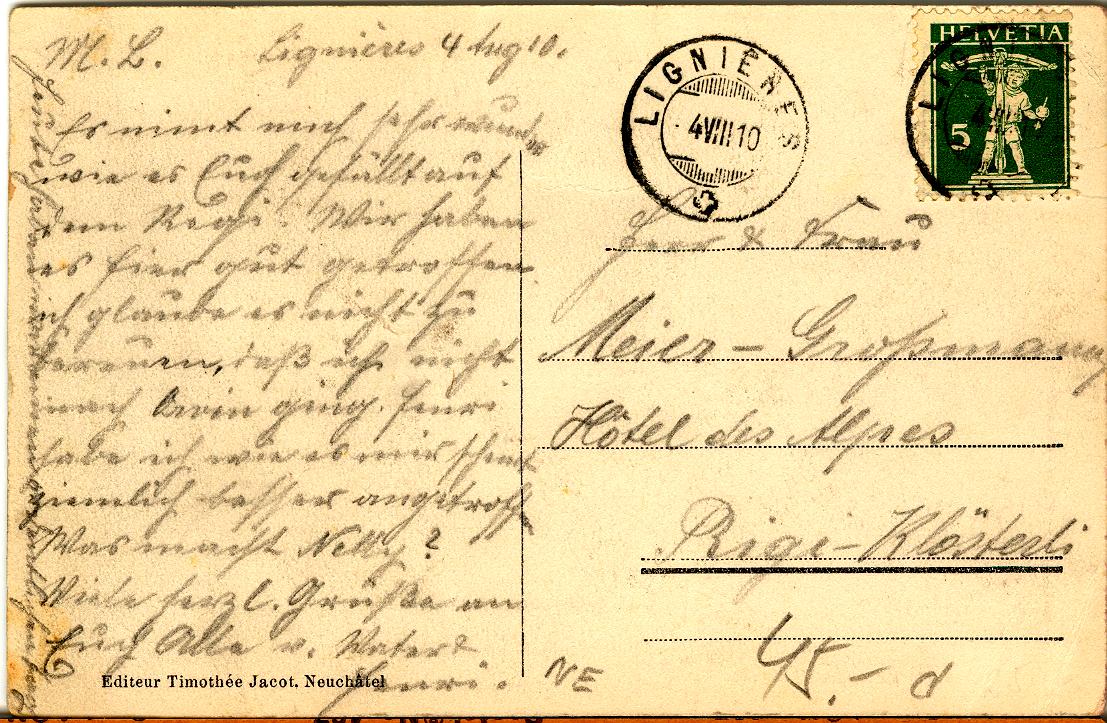 M. L. Lignières 4 Aug 10.
Es nimt mich sehr wunder
wie es Euch gefällt auf
dem Rigi. Wir haben
es hier gut getroffen
ich glaube es nicht zu
bereuen, daß ich nicht
nach ging. Henri
habe ich wie es mir scheint
ziemlich besser angetroff
Was macht Nelly?
Viele herzl. Grüße an
Euch Alle v. Vater &
Henri.
Heute haben wir
Editeur Timothée Jacot, Neuchâtel
LIGNIÈRES
4 VIII 10
HELVETIA
5
LIGN
4 VIII
Herr & Frau
Meier - Großmann
Hôtel des Alpes
Rigi-Klösterli
NE
45.- d